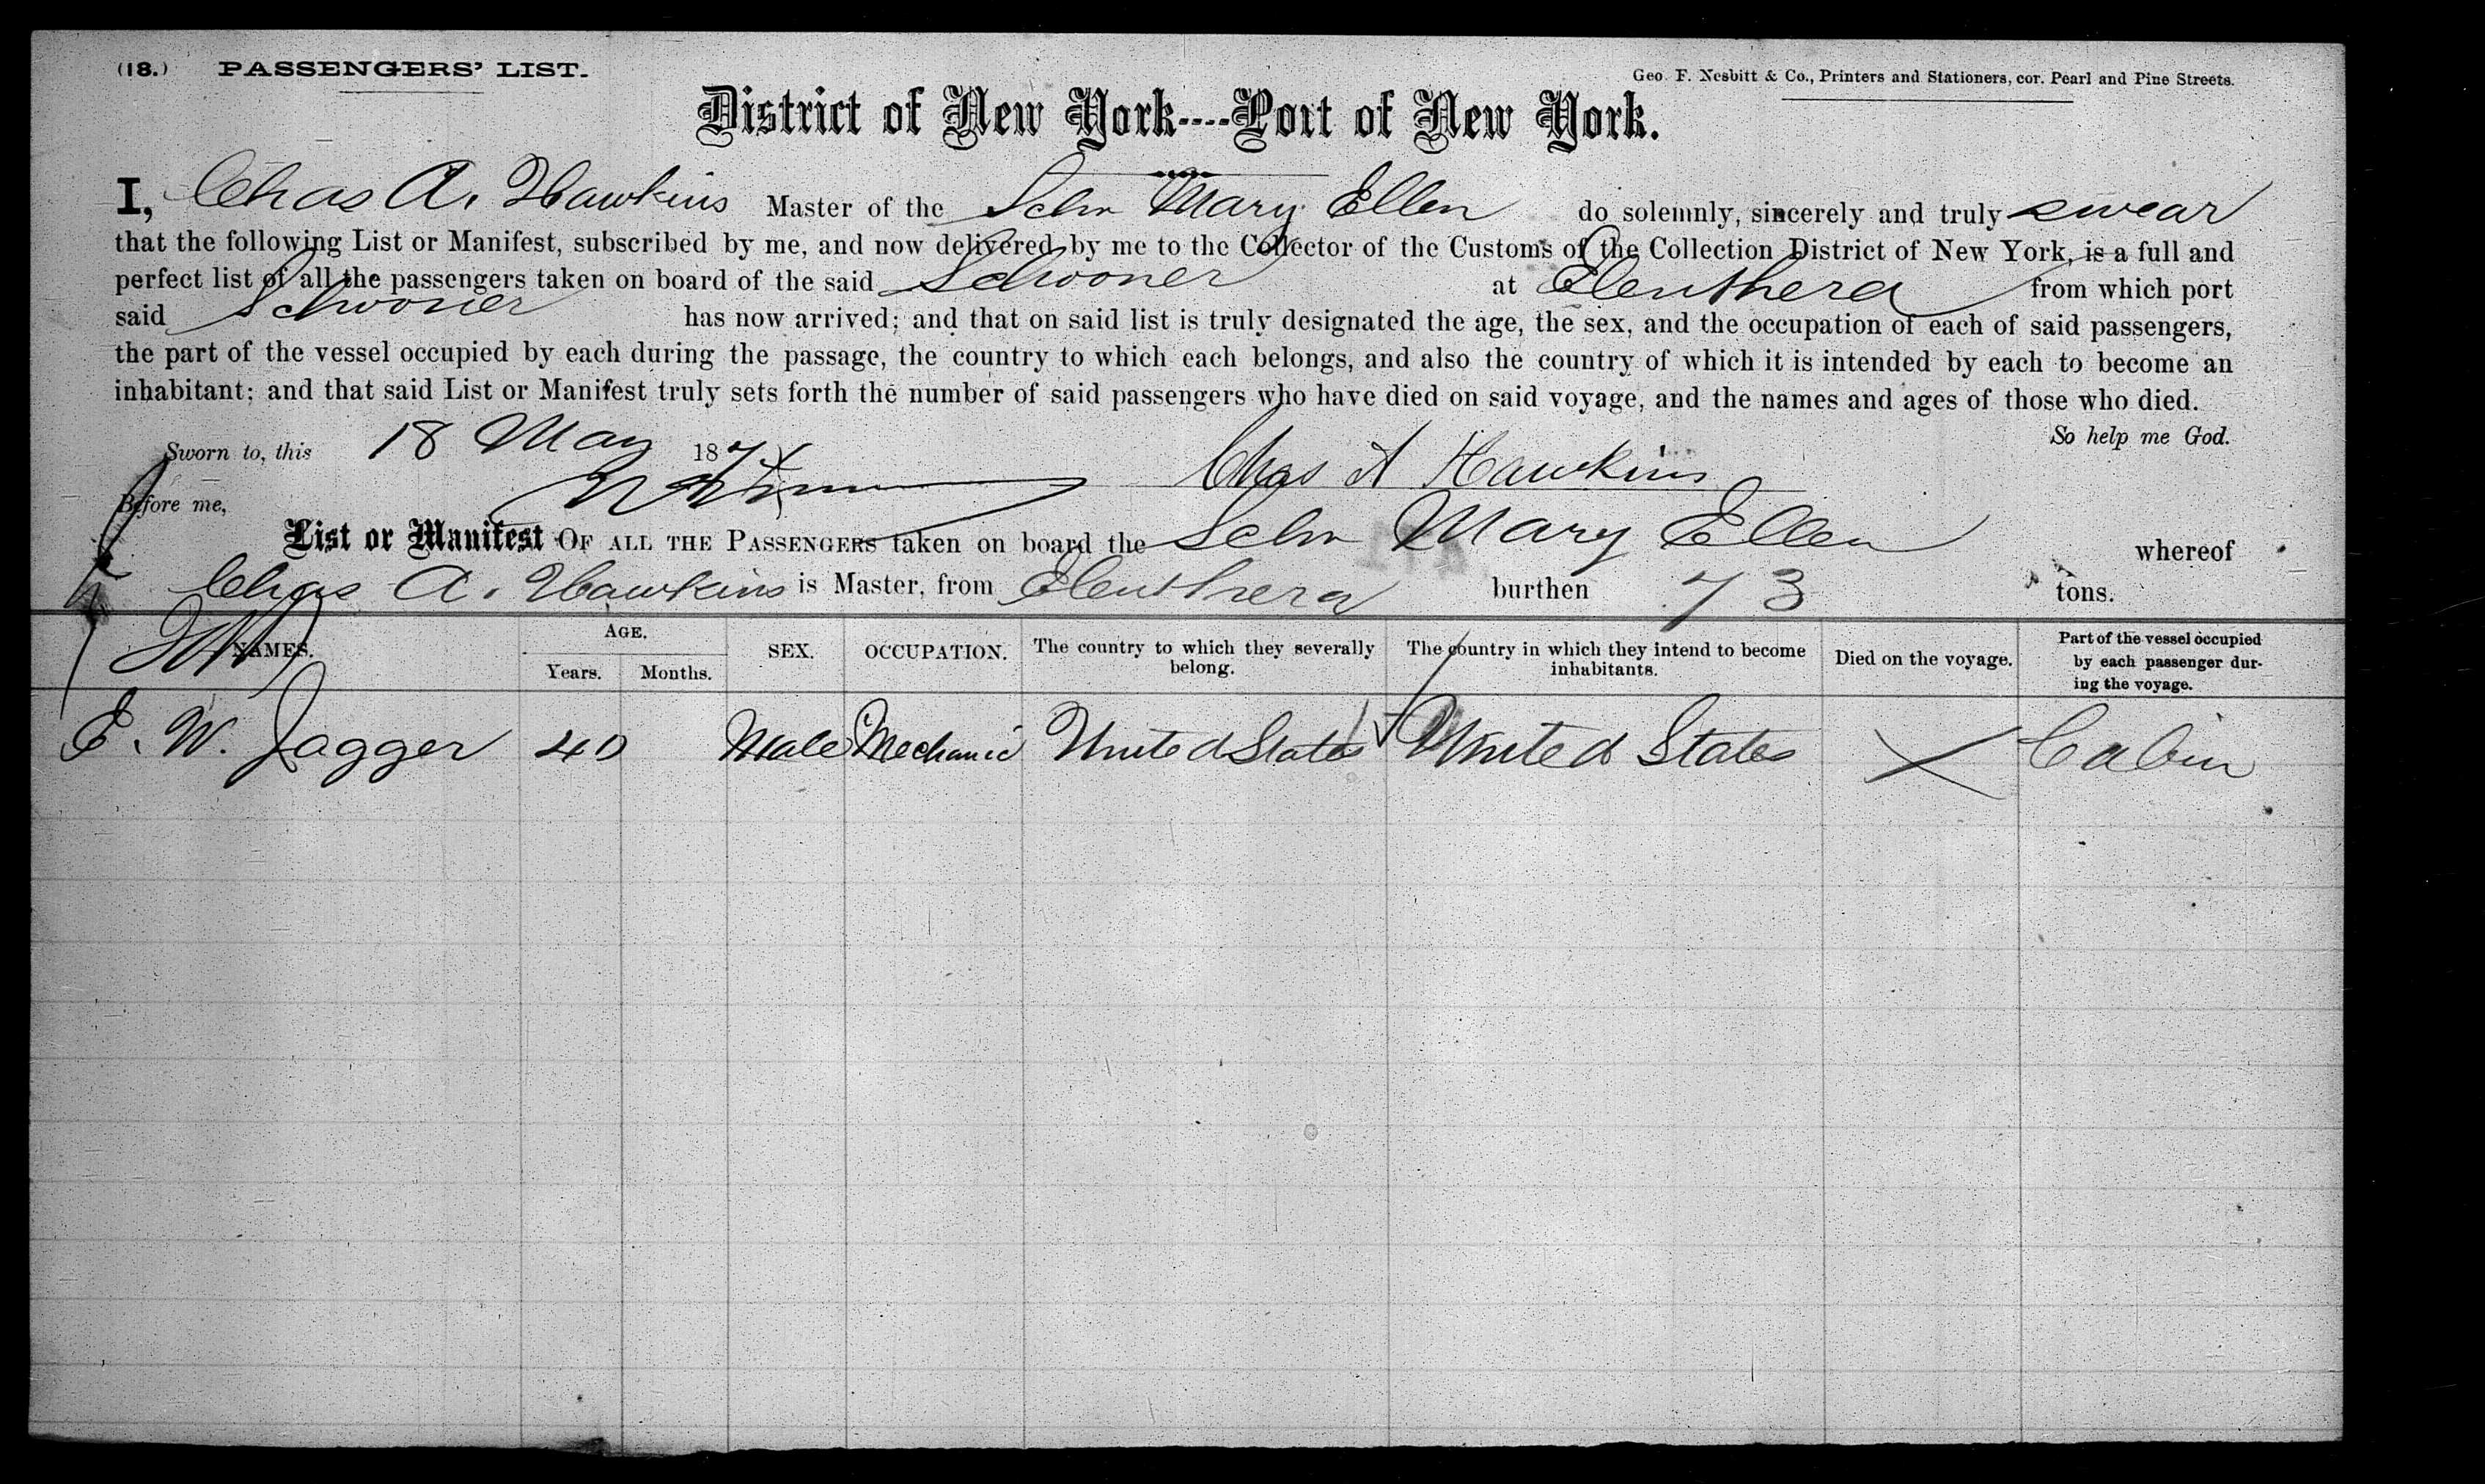 (18.) PASSENGERS' LIST.
Geo. F. Nesbitt & Co., Printers and Stationers, cor. Pearl and Pine Streets.
District of New York----Port of New York.
I, Chas A. Hawkins Master of the Schr Mary Ellen do solemnly, sincerely and truly swear
that the following List or Manifest, subscribed by me, and now delivered by me to the Collector of the Customs of the Collection District of New York, is a full and
perfect list of all the passengers taken on board of the said Schooner at Eleuthera from which port
said Schooner has now arrived; and that on said list is truly designated the age, the sex, and the occupation of each of said passengers,
the part of the vessel occupied by each during the passage, the country to which each belongs, and also the country of which it is intended by each to become an
inhabitant; and that said List or Manifest truly sets forth the number of said passengers who have died on said voyage, and the names and ages of those who died.
So help me God.
Sworn to, this 18 May 187
Chas A Hawkins
Before me,
List or Manifest OF ALL THE PASSENGERS taken on board the Schr Mary Ellen whereof
Chas A. Hawkins is Master, from Eleuthera burthen 73 tons.
NAMES. AGE. Years. Months. SEX. OCCUPATION. The country to which they severally belong. The country in which they intend to become inhabitants. Died on the voyage. Part of the vessel occupied by each passenger during the voyage.
E. W. Jagger 40 Male Mechanic United States United States Cabin